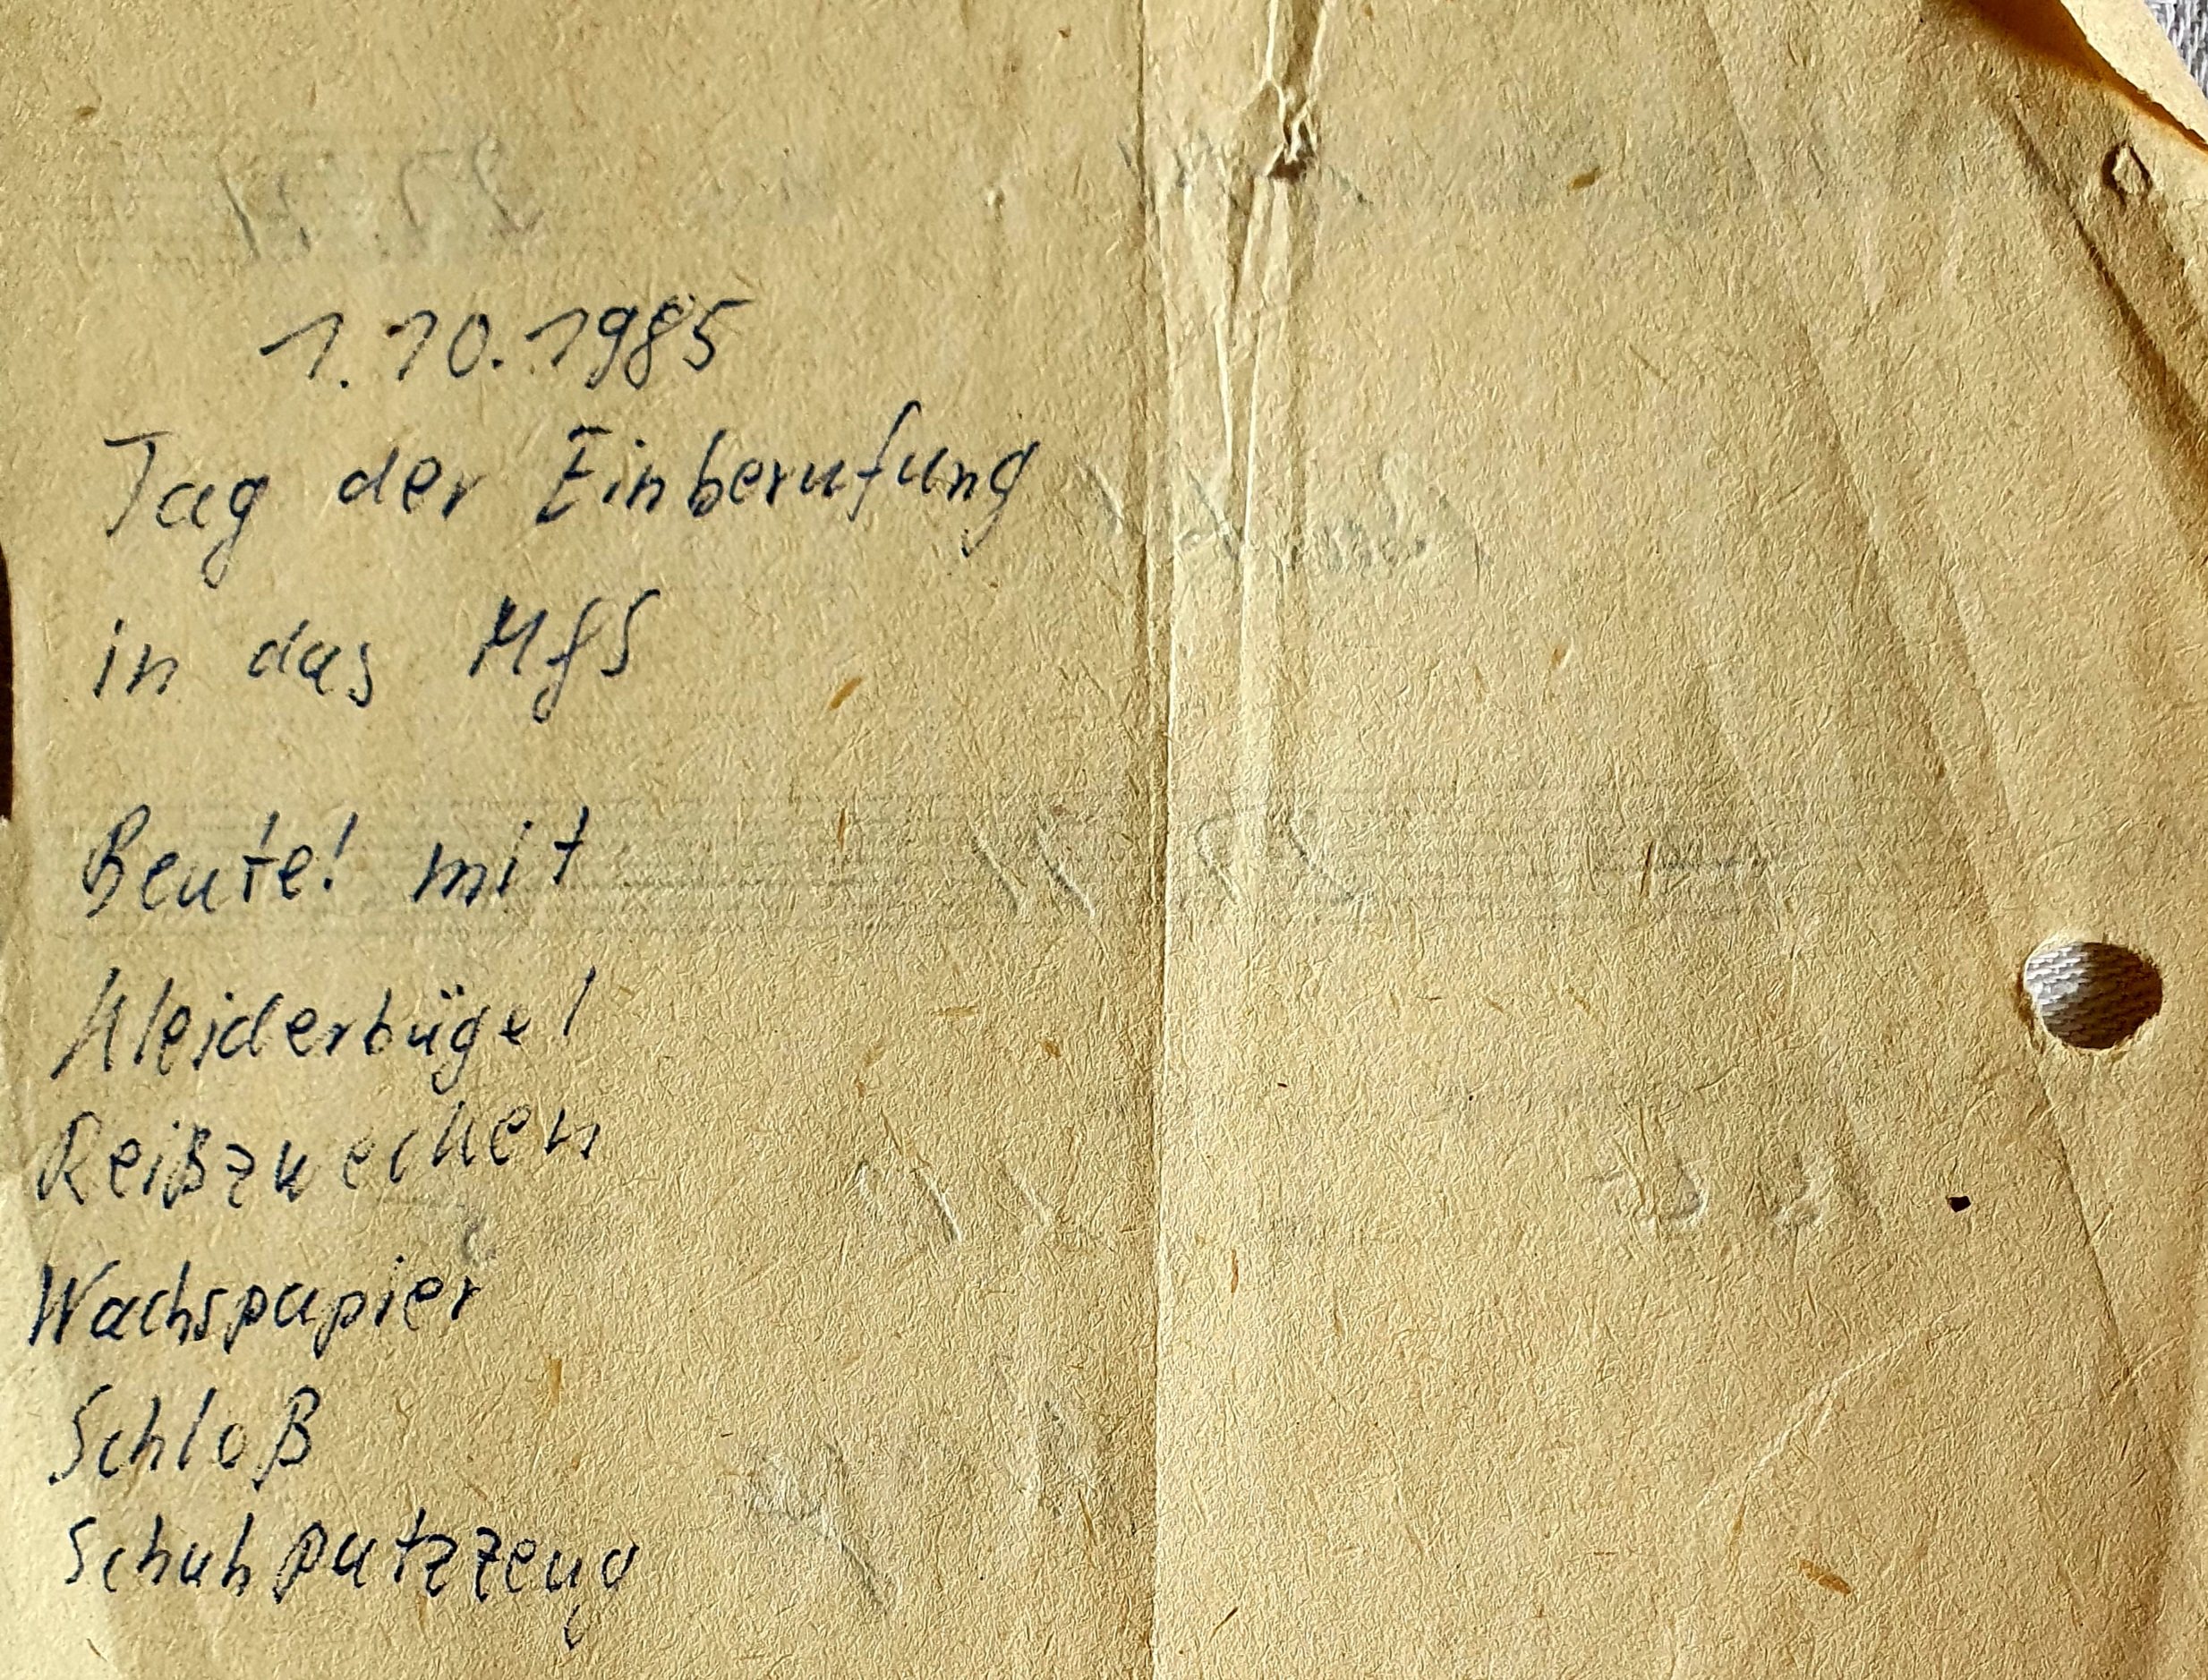 1.10.1985
Tag der Einberufung
in das MfS
Beute! mit
Kleiderbügel
Reißzwecken
Wachspapier
Schloß
Schuhputzzeug